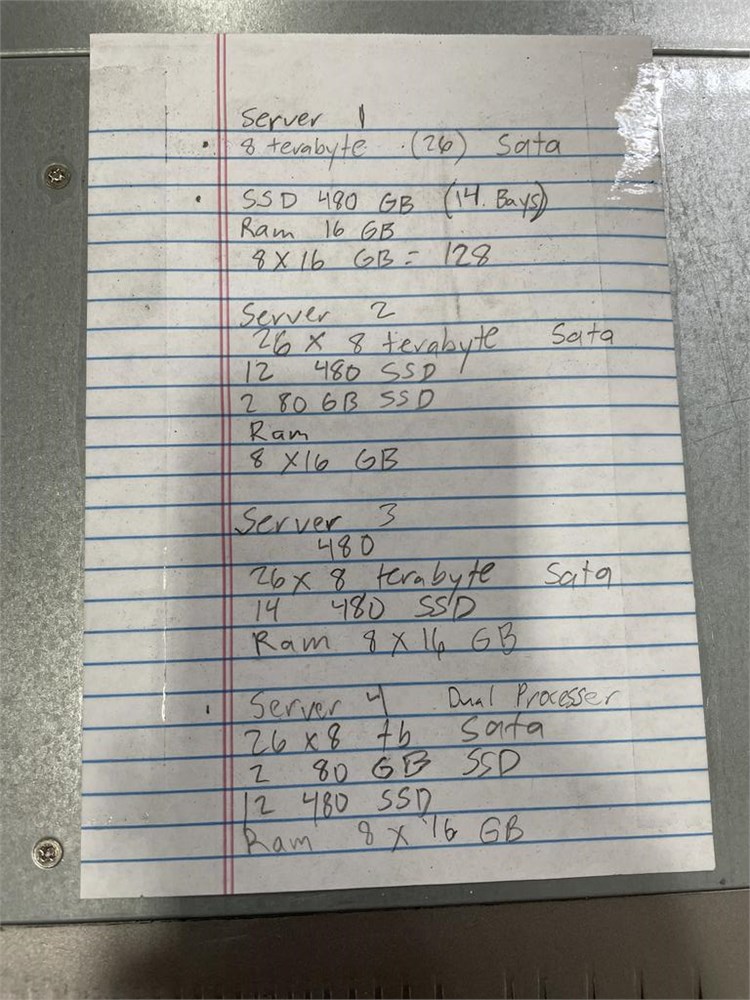 Server 1
• 8 terabyte (26) Sata
• SSD 480 GB (14. Bays)
Ram 16 GB
8 X 16 GB = 128
Server 2
26 X 8 terabyte Sata
12 480 SSD
2 80 GB SSD
Ram
8 X16 GB
Server 3
480
26 X 8 terabyte Sata
14 480 SSD
Ram 8 X 16 GB
• Server 4 Dual Processer
26 X 8 tb Sata
2 80 GB SSD
12 480 SSD
Ram 8 X 16 GB